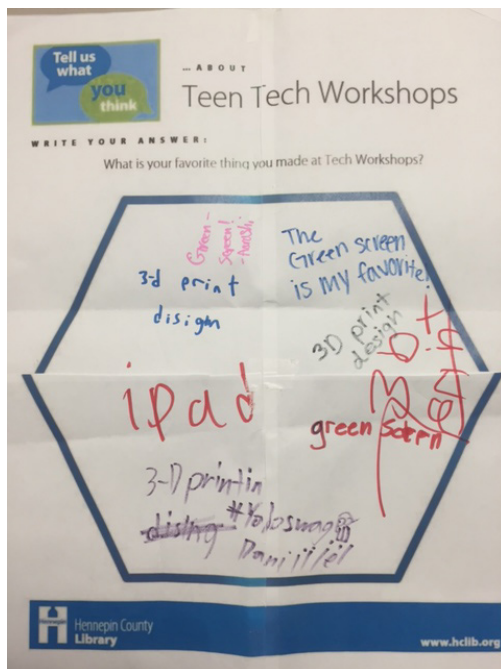 Tell us
what
you
think
... ABOUT
Teen Tech Workshops
WRITE YOUR ANSWER:
What is your favorite thing you made at Tech Workshops?
Green-
Screen!
The
Green screen
is my favorite!
3-d print
disign
3D print
design
ipad
green screen
3-D printin
#Yoloswag
Hennepin
Hennepin County
Library
www.hclib.org